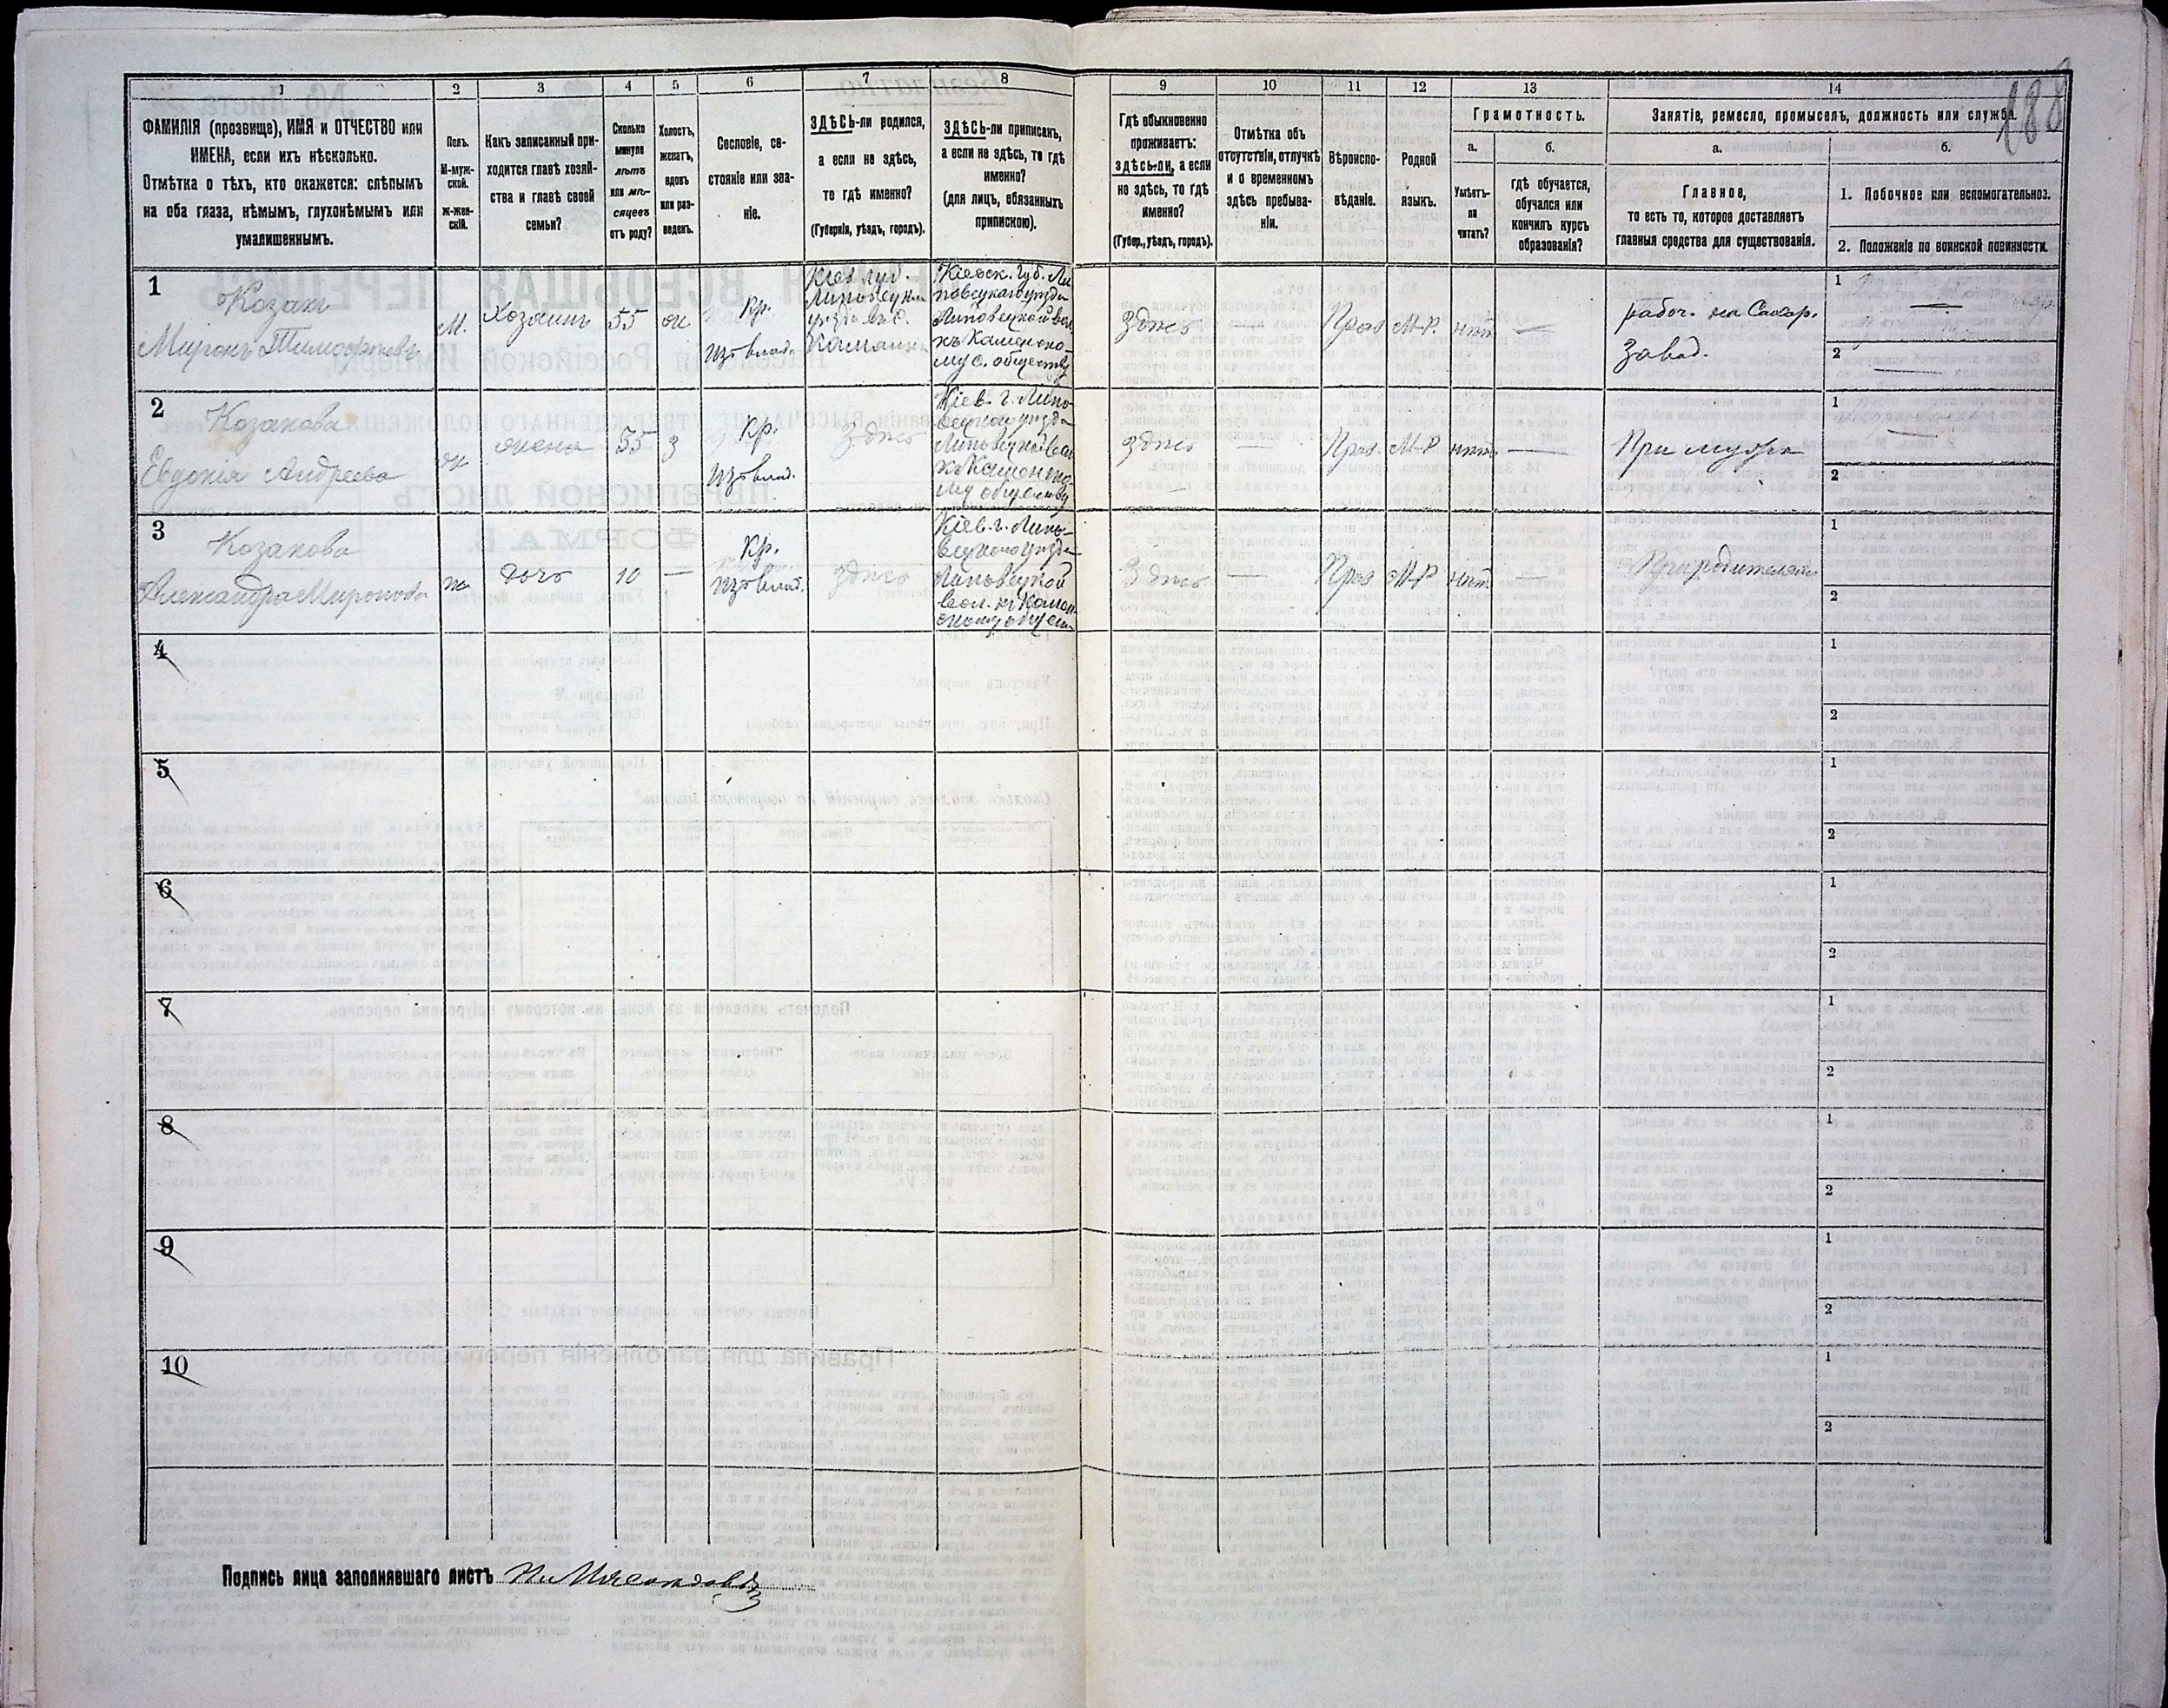 188
1 2 3 4 5 6 7 8 9 10 11 12 13 14
ФАМИЛІЯ (прозвище), ИМЯ и ОТЧЕСТВО или
ИМЕНА, если ихъ нѣсколько.
Отмѣтка о тѣхъ, кто окажется: слѣпымъ
на оба глаза, нѣмымъ, глухонѣмымъ или
умалишеннымъ.
Полъ.
М-муж-
ской.
ж-жен-
скій.
Какъ записанный при-
ходится главѣ хозяй-
ства и главѣ своей
семьи?
Сколько
минуло
лѣтъ
или мѣ-
сяцевъ
отъ роду?
Холостъ,
женатъ,
вдовъ
или раз-
веденъ.
Сословіе, со-
стояніе или зва-
ніе.
ЗДѢСЬ-ли родился,
а если не здѣсь,
то гдѣ именно?
(Губернія, уѣздъ, городъ).
ЗДѢСЬ-ли приписанъ,
а если не здѣсь, то гдѣ
именно?
(для лицъ, обязанныхъ
припискою).
Гдѣ обыкновенно
проживаетъ:
здѣсь-ли, а если
не здѣсь, то гдѣ
именно?
(Губер., уѣздъ, городъ).
Отмѣтка объ
отсутствіи, отлучкѣ
и о временномъ
здѣсь пребыва-
ніи.
Вѣроиспо-
вѣданіе.
Родной
языкъ.
Грамотность.
а.
Умѣетъ-
ли
читать?
б.
гдѣ обучается,
обучался или
кончилъ курсъ
образованія?
Занятіе, ремесло, промыселъ, должность или служба.
а.
Главное,
то есть то, которое доставляетъ
главныя средства для существованія.
б.
1. Побочное или вспомогательное.
2. Положеніе по воинской повинности.
1
Козакъ
Миронъ Тимофѣевъ
М.
Хозяинъ
55
ж
Кр.
изъ влад.
Кіев. губ.
Липовецкаго
уѣзда въ с.
Кіевск. губ. Ли
повецкаго уѣзда
Липовецкой вол.
къ Каменско-
му с. обществу
здѣсь
Прав. М-Р. нѣтъ —
рабоч. на Сахар.
завод.
1 —
2 —
2
Козакова
Евдокія Андреева
ж
жена
55
з
Кр.
изъ влад.
здѣсь
Кіев. г. Липо-
вецкаго уѣзда
Липовецкой вол.
къ Каменско-
му обществу
здѣсь — Прав. М-Р нѣтъ —
При мужѣ
1 —
2
3
Козакова
Александра Миронова
ж
дочь
10
—
Кр.
изъ влад.
здѣсь
Кіев. г. Липо-
вецкаго уѣзда
Липовецкой
вол. къ Камен-
скому общест.
здѣсь — Прав М-Р нѣтъ —
При родителяхъ
1
2
4
1
2
5
1
2
6
1
2
7
1
2
8
1
2
9
1
2
10
1
2
Подпись лица заполнявшаго листъ